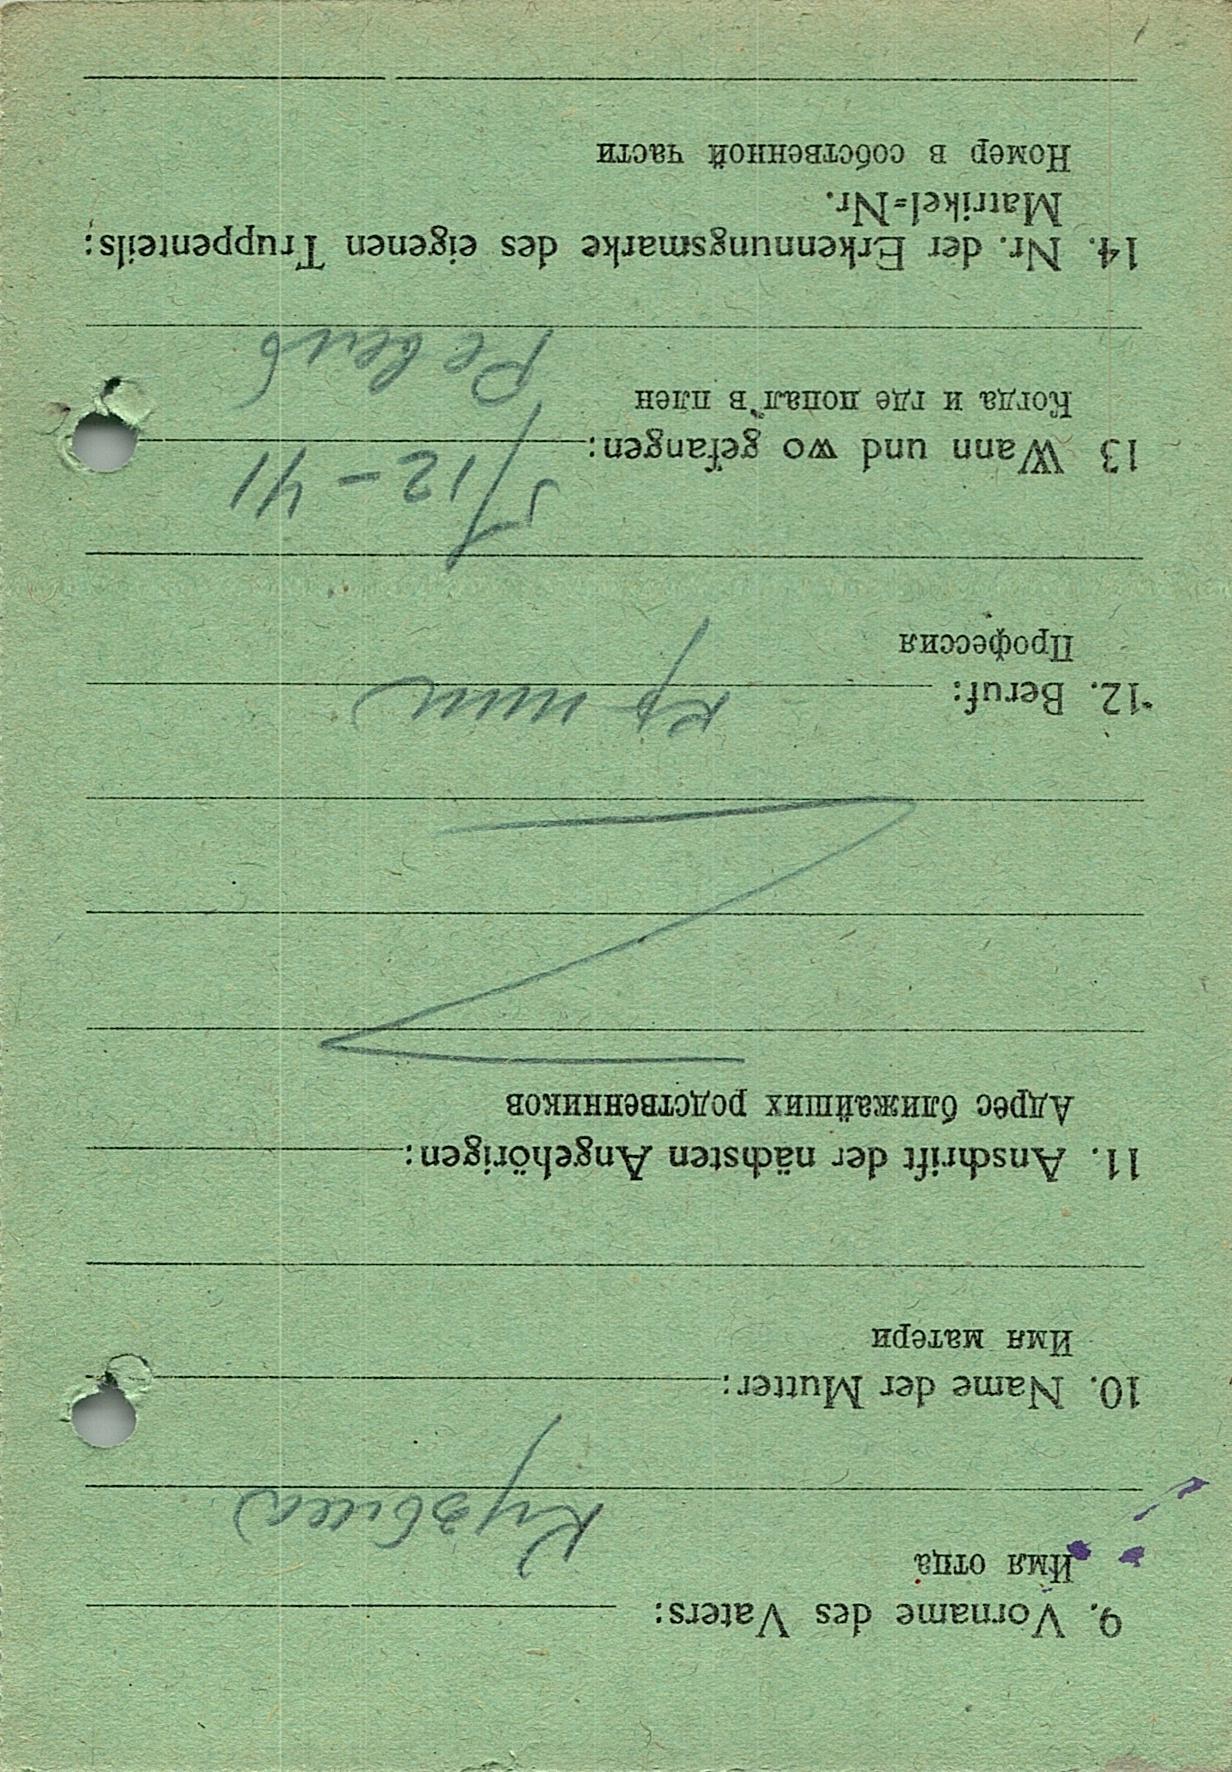 9. Vorname des Vaters:
Имя отца
Кузьма
10. Name der Mutter:
Имя матери
11. Anschrift der nächsten Angehörigen:
Адрес ближайших родственников
12. Beruf:
Профессия
13 Wann und wo gefangen:
5/12-41
Когда и где попал в плен
Ревель
14. Nr. der Erkennungsmarke des eigenen Truppenteils:
Matrikel=Nr.
Номер в собственной части